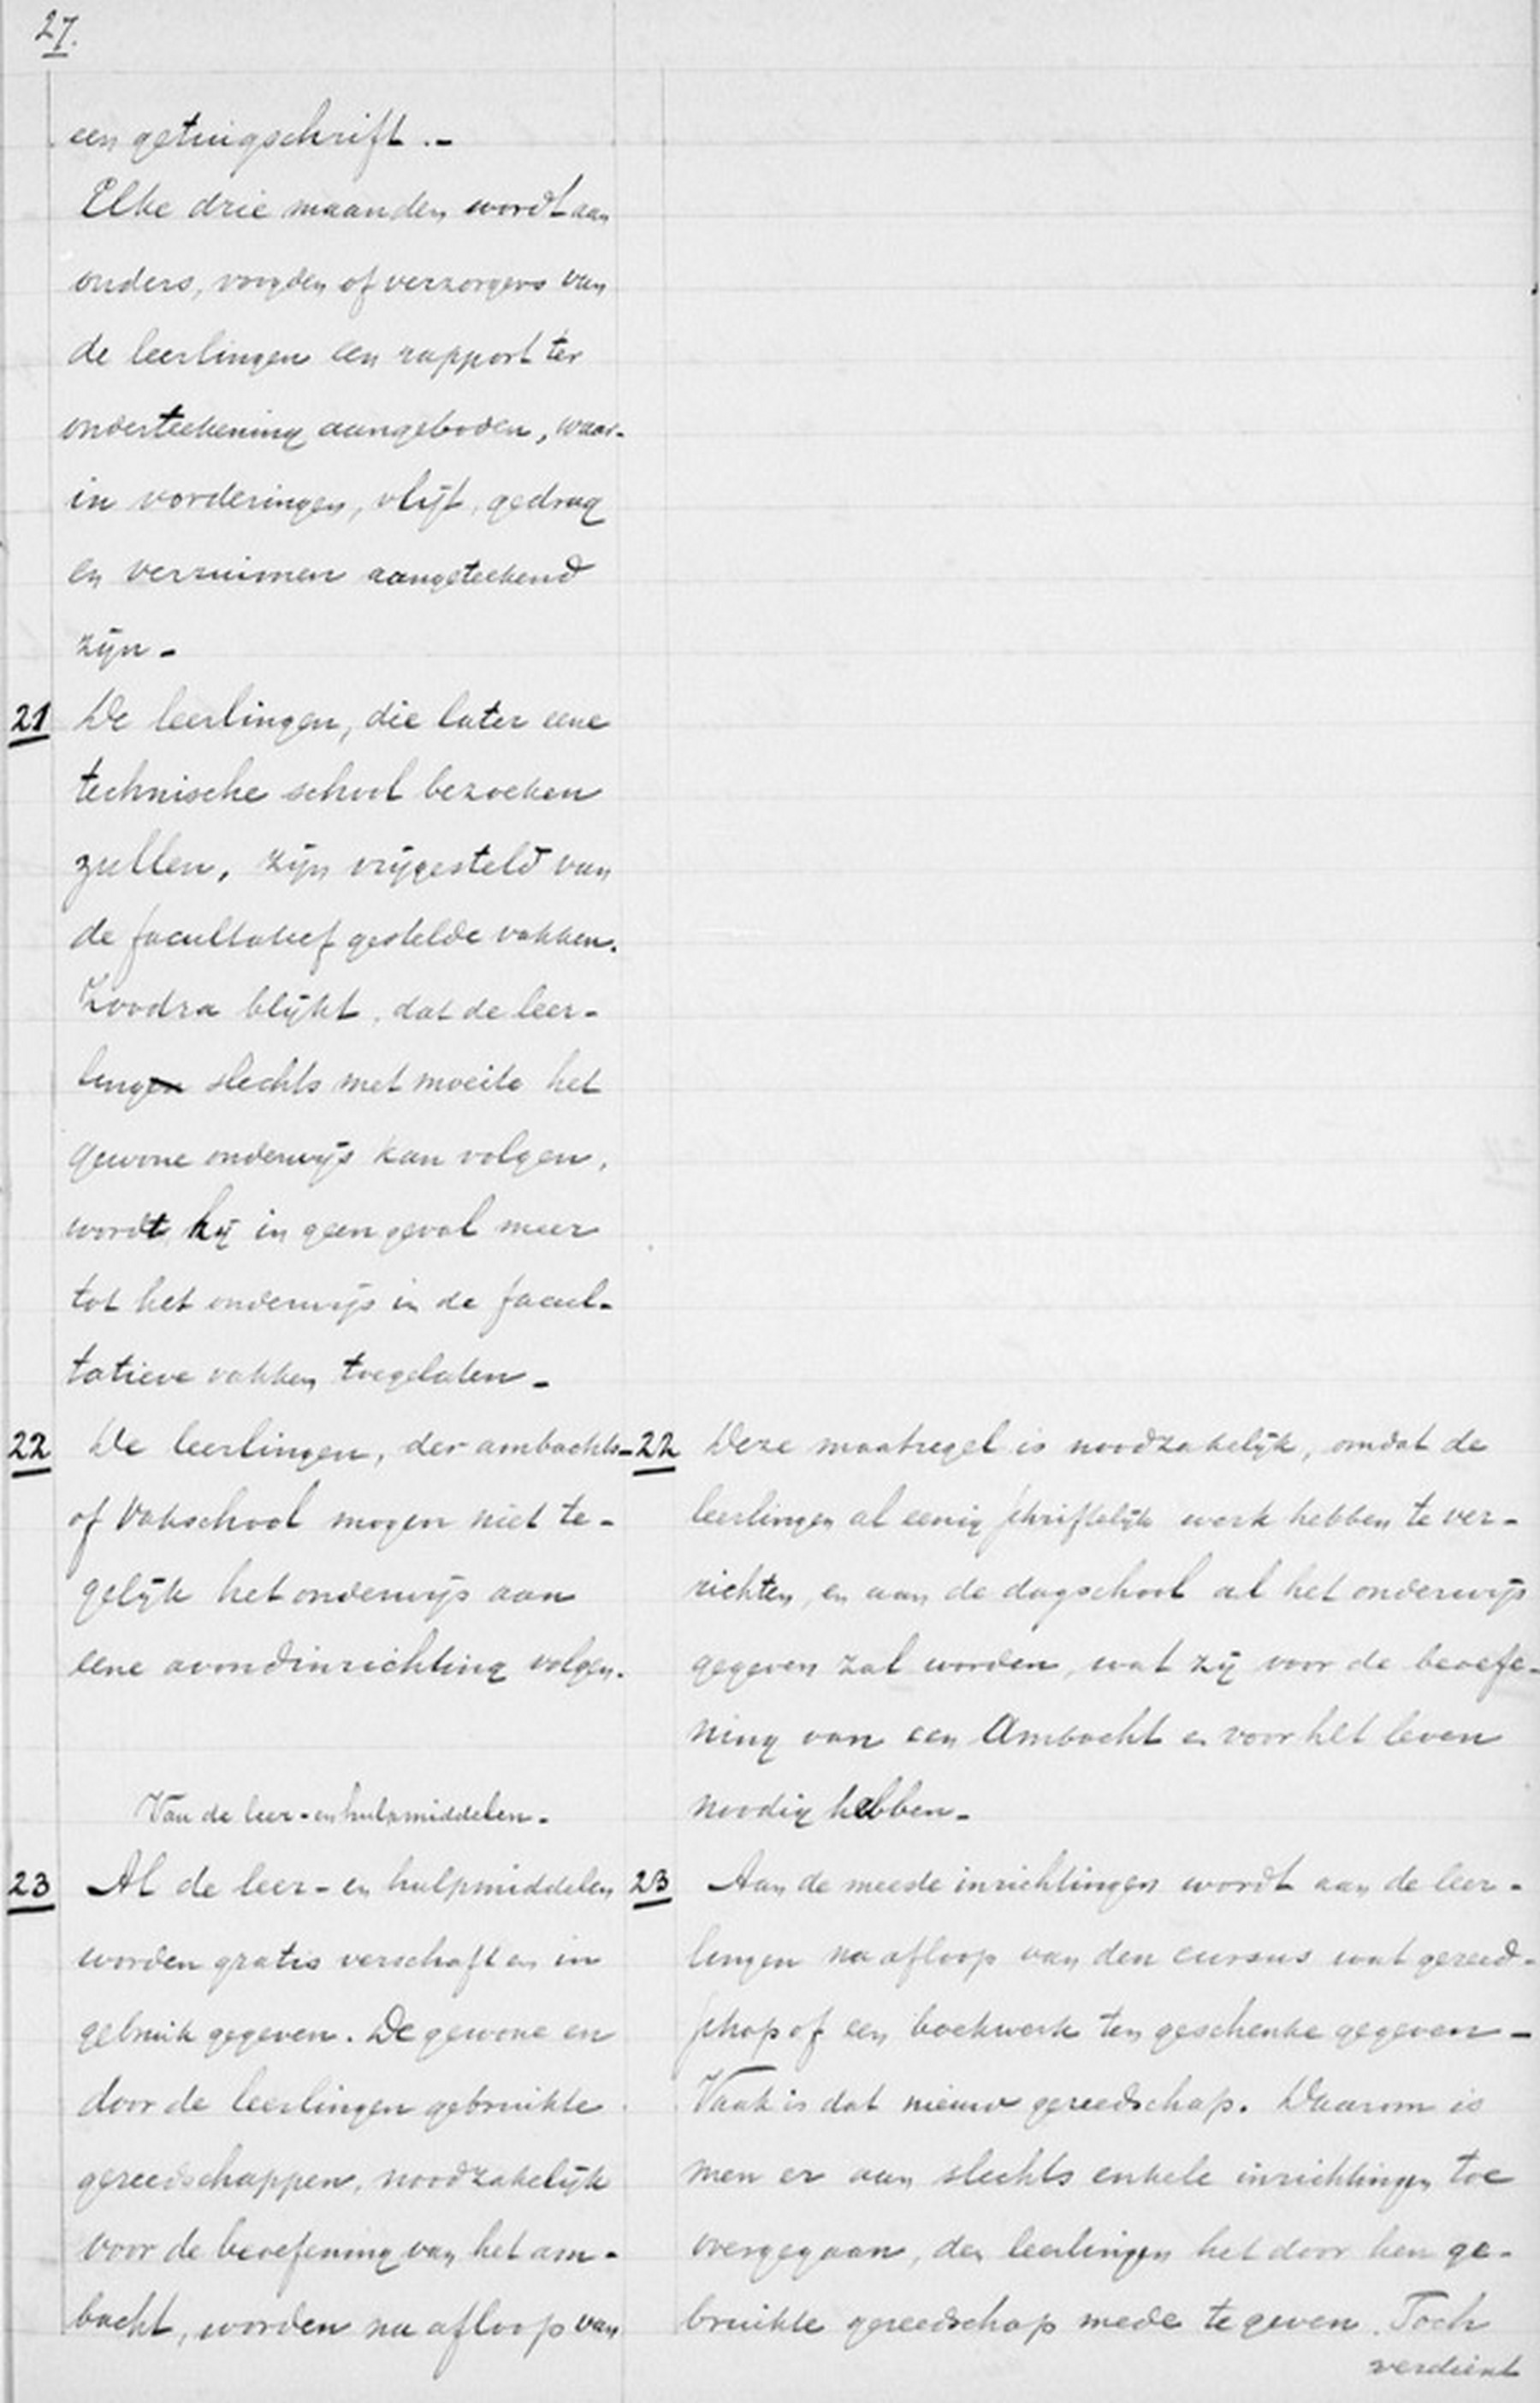 27.
een getuigschrift.-
Elke drie maanden wordt aan
ouders, voogden of verzorgers van
de leerlingen een rapport ter
onderteekening aangeboden, waar-
in vorderingen, vlijt, gedrag
en verzuimen aangeteekend
zijn-
21 De leerlingen, die later eene
technische school bezoeken
zullen, zijn vrijgesteld van
de facultatief gestelde vakken.
Zoodra blijkt, dat de leer-
lingen slechts met moeite het
gewone onderwijs kan volgen,
wordt hij in geen geval meer
tot het onderwijs in de facul-
tatieve vakken toegelaten-
22 De leerlingen, der ambachts-
of Vakschool mogen niet te-
gelijk het onderwijs aan
eene avondinrichting volgen.
Van de leer- en hulpmiddelen-
23 Al de leer- en hulpmiddelen
worden gratis verschaft en in
gebruik gegeven. De gewone en
door de leerlingen gebruikte
gereedschappen, noodzakelijk
voor de beoefening van het am-
bacht, worden na afloop van
22 Deze maatregel is noodzakelijk, omdat de
leerlingen al eenig schriftelijk werk hebben te ver-
richten, en aan de dagschool al het onderwijs
gegeven zal worden, wat zij voor de beoefe-
ning van een Ambacht en voor het leven
noodig hebben-
23 Aan de meeste inrichtingen wordt aan de leer-
lingen na afloop van den cursus wat gereed-
schap of een boekwerk ten geschenke gegeven-
Vaak is dat nieuw gereedschap. Daarom is
men er aan slechts enkele inrichtingen toe
overgegaan, den leerlingen het door hen ge-
bruikte gereedschap mede te geven. Toch
verdient